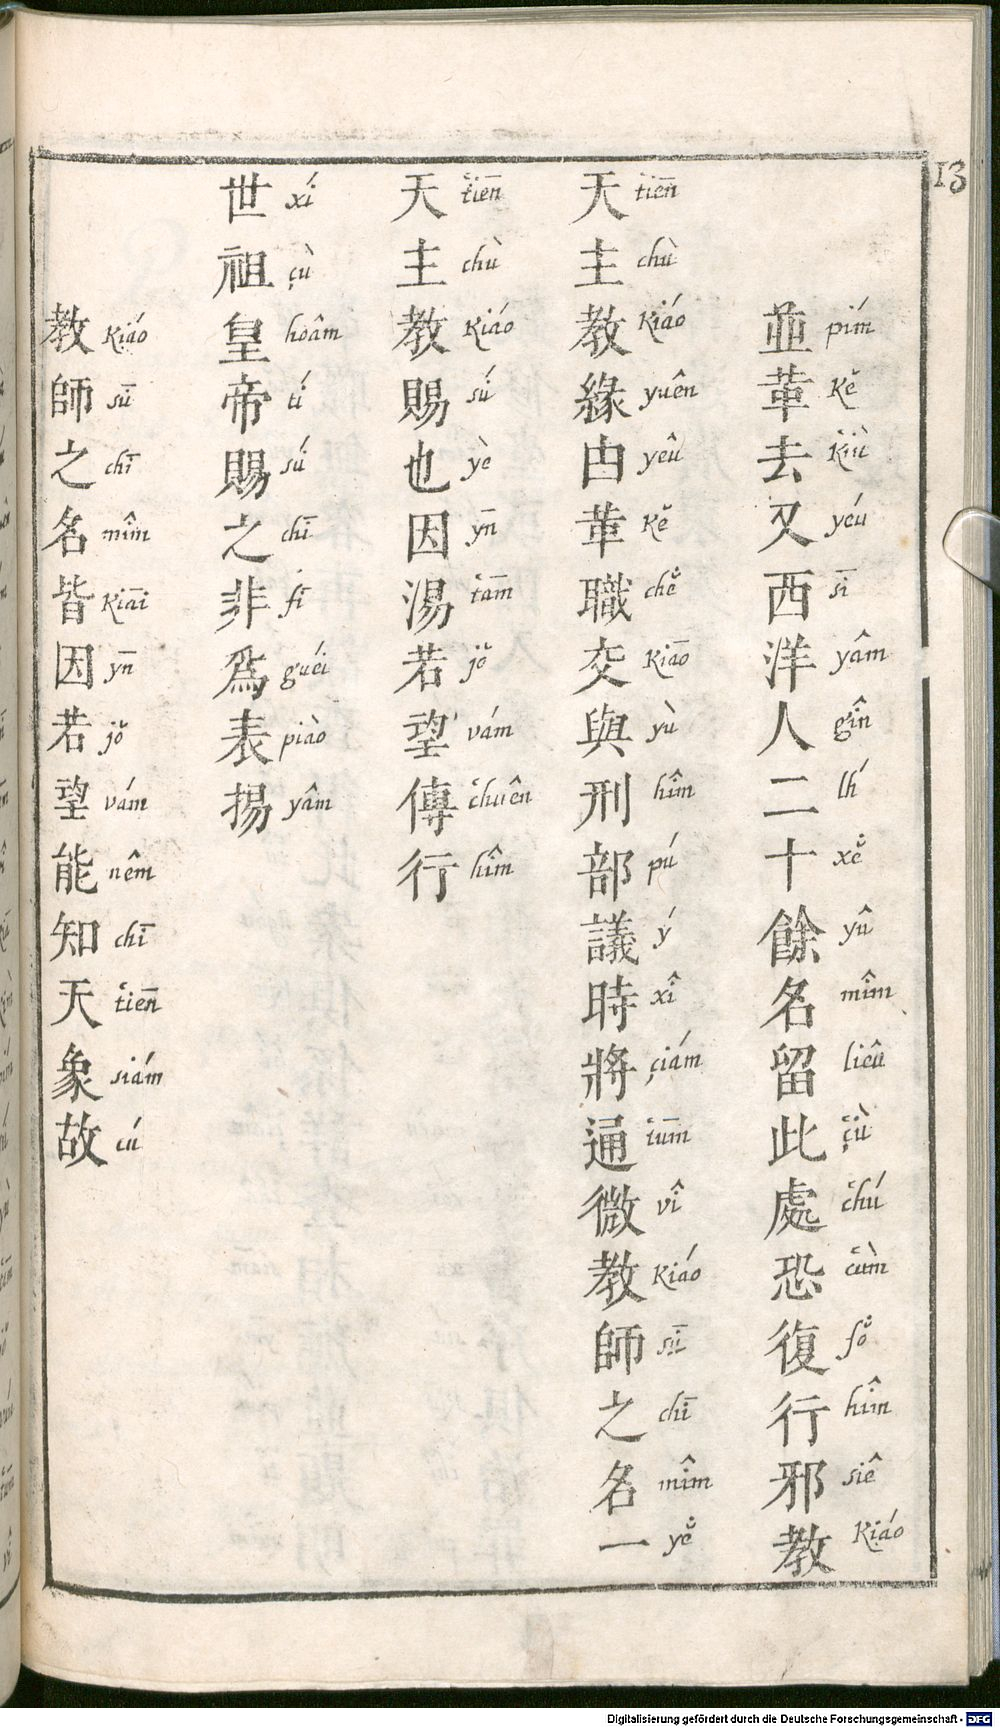 13
並革去又西洋人二十餘名留此處恐復行邪教
pím kĕ kiú yéu sī yâm gîn lh́ xĕ yû mîm liêu çù chú cùm fŏ hîm siê kiáo
天主教緣由革職交與刑部議時將通微教師之名一
tiēn chù kiáo yuên yêu kĕ chĕ kiāo yù hîm pú ý xî çiám tūm vî kiáo sū chī mîm yĕ
天主教賜也因湯若望傳行
tiēn chù kiáo sú yè yn̄ tām jŏ vám chuên hîm
世祖皇帝賜之非爲表揚
xí çù hoâm tí sú chī fī guéi piào yâm
教師之名皆因若望能知天象故
kiáo sū chī mîm kiāi yn̄ jŏ vám nêm chī tiēn siám cú
Digitalisierung gefördert durch die Deutsche Forschungsgemeinschaft - DFG